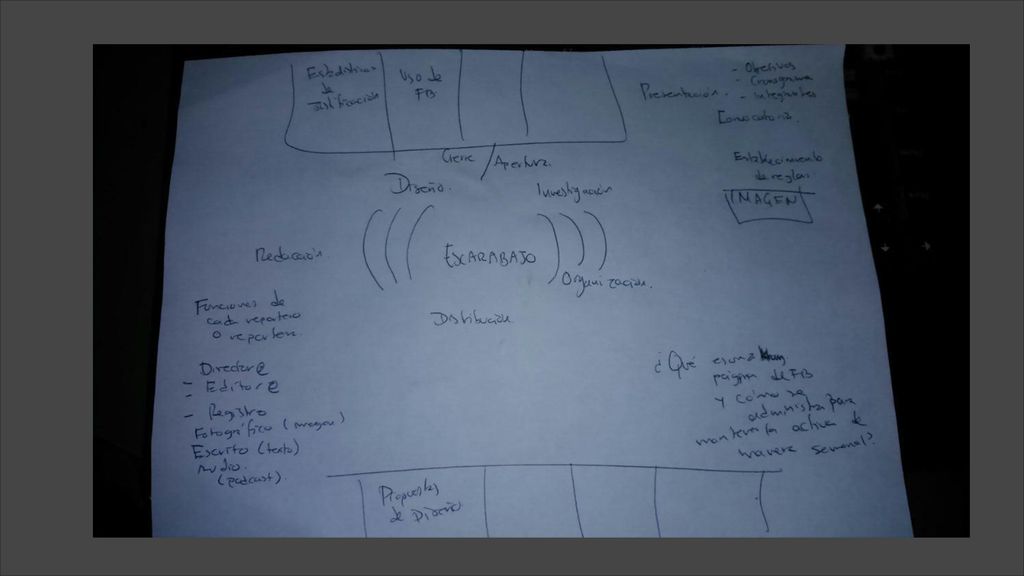 Uso de
FB
- Objetivos
- Cronograma
Presentación. - integrantes
Convocatoria.
Cierre / Apertura.
Establecimiento
de reglas
IMAGEN
Diseño.
Investigación
Redacción.
ESCARABAJO
Organización.
Distribución.
Funciones de
cada reportero
o reportera.
Director@
- Editor@
- Registro
Fotográfico (imagen)
Escrito (texto)
Audio.
(podcast)
¿Qué es una
página de FB
y cómo se
administra para
mantenerla activa de
manera semanal?
Propuestas
de Diseño